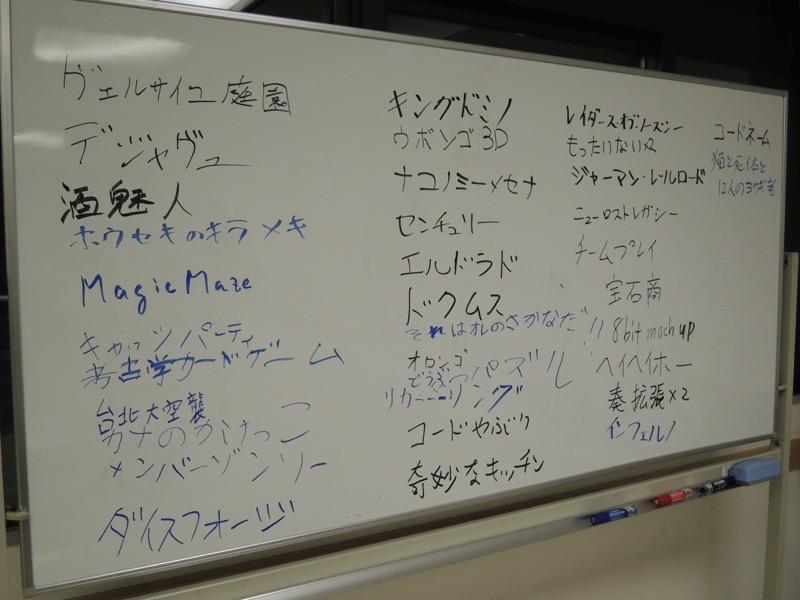 ヴェルサイユ庭園
デジャヴュ
酒魅人
ホウセキのキラメキ
Magic Maze
キャッツパーティ
考古学カードゲーム
台北大空襲
メンバーゾンリー
ダイスフォージ
キングドミノ
ウボンゴ3D
ナコノミーメセナ
センチュリー
エルドラド
ドクムス
それはオレのさかなだ!!
オロンゴ
どうぶつアパズル
コードやぶり
奇妙なキッチン
レイダースオブノースシー
もったいない×2
ジャーマン・レールロード
ニューロストレガシー
チームプレイ
宝石商
8bit moch up
ヘイヘイホー
奏拡張×2
インフェルノ
コードネーム
猫と死体と
12人のヨウギ者